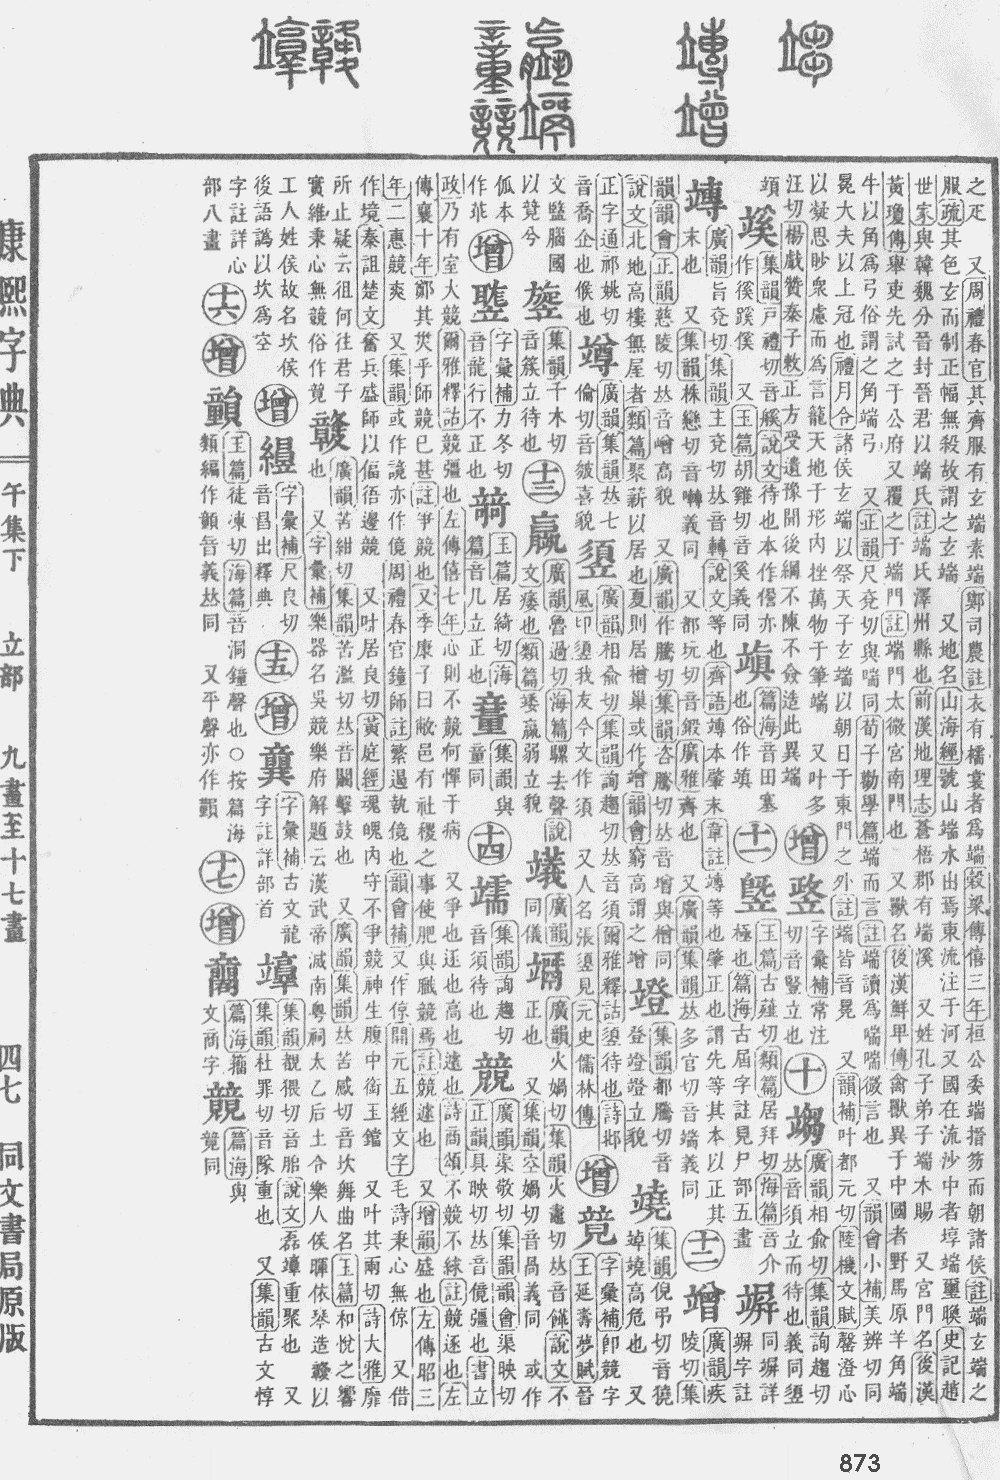 之疋 又周禮春官其齊服有玄端素端鄭司農註衣有襦裳者爲端穀梁傳僖三年桓公委端搢笏而朝諸侯註端玄端之
服疏其色玄而制正幅無殺故謂之玄端 又地名山海經號山端水出焉東流注于河又國在流沙中者埻端璽㬇史記趙
世家與韓魏分晉封晉君以端氏註端氏澤州縣也前漢地理志蒼梧郡有端溪 又姓孔子弟子端木賜 又宮門名後漢
黃瓊傳舉吏先試之于公府又覆之于端門註端門太微宮南門也 又獸名後漢鮮卑傳禽獸異于中國者野馬原羊角端
牛以角爲弓俗謂之角端弓 又正韻尺兗切與喘同荀子勸學篇端而言註端讀爲喘喘微言也 又韻會小補美辨切同
冕大夫以上冠也禮月令諸侯玄端以祭天子玄端以朝日于東門之外註端皆音冕 又韻補叶都元切陸機文賦罄澄心
以凝思眇衆慮而爲言籠天地于形內挫萬物于筆端 又叶多
汪切楊戲贊秦子敕正方受遺豫聞後綱不陳不僉造此異端
增 竪 字彙補常注切音豎立也
十 䇕 廣韻相俞切集韻詢趨切𠀤音須立而待也義同䇓
頊
䜁 集韻戸禮切音謑說文待也本作㒆亦作徯蹊傒 又玉篇胡雞切音奚義同
䇯 篇海音田塞也俗作塡
十一 曁 玉篇古薤切類篇居拜切海篇音介極也篇海古屆字註見尸部五畫
竮 同竮詳竮字註
竱 廣韻旨兗切集韻主兗切𠀤音轉說文等也齊語竱本肇末韋註竱等也肇正也謂先等其本以正其末也 又集韻株戀切音囀義同 又都玩切音鍛廣雅齊也 又廣韻集韻𠀤多官切音端義同
十二 增 竲 廣韻疾陵切集韻韻會正韻慈陵切𠀤音嶒高貌 又廣韻作滕切集韻咨騰切𠀤音增與橧同說文北地高樓無屋者類篇聚薪以居也夏則居橧巢或作竲韻會窮高謂之竲
䔲 集韻都騰切音登竳竳立貌
䗵 集韻倪弔切音獟竨䗵高危也 又正字通祁姚切音喬企也傒也
竴 廣韻集韻𠀤七倫切音皴喜貌
䇓 廣韻相俞切集韻詢趨切𠀤音須爾雅釋詁䇓待也詩邶風卬須我友今文作須 又人名張䇓見元史儒林傳
增 竸 字彙補卽競字王延壽夢賦晉文盬腦國以競兮
䇲 集韻千木切音簇立待也
十三 羸 廣韻魯過切海篇騾去聲說文痿也類篇㾼羸弱立貌
䇵 廣韻同儀正也
䇶 廣韻火媧切集韻火鼃切𠀤音䤷說文不正也 又集韻空媧切音咼義同 或作㑥本作𦫳
增 字彙補力冬切音龍行不正也
玉篇居綺切海篇音几立正也
集韻與童同
十四 𥪯 集韻詢趨切音須待也
競 廣韻渠敬切集韻韻會渠映切正韻具映切𠀤音傹彊也書立政乃有室大競爾雅釋詁競彊也左傳僖七年心則不競何憚于病 又爭也逐也高也遽也詩商頌不競不絿註競逐也左傳襄十年鄭其災乎師競已甚註爭競也又季康子曰敝邑有社稷之事使肥與職競焉註競遽也 又增韻盛也左傳昭三年二惠競爽 又集韻或作誩亦作傹周禮春官鐘師註繁遏執傹也韻會補又作倞開元五經文字毛詩秉心無倞 又借作境秦詛楚文奮兵盛師以偪㑄邊競 又叶居良切黃庭經魂魄內守不爭競神生腹中銜玉鐺 又叶其兩切詩大雅靡所止疑云徂何往君子實維秉心無競俗作竸
𥫔 廣韻苦紺切集韻苦濫切𠀤音闞擊鼓也 又廣韻集韻𠀤苦感切音坎舞曲名玉篇和悅之響也 又字彙補樂器名吳競樂府解題云漢武帝滅南粤祠太乙后土令樂人侯暉依琴造𥫔以工人姓侯故名坎侯後語譌以坎爲空
增 字彙補尺良切音昌出釋典
十五 增 字彙補古文龍字註詳部首
集韻覩猥切音腂說文磊䇴重聚也 又集韻杜罪切音隊重也 又集韻古文惇字註詳心部八畫
十六 增 玉篇徒凍切海篇音洞鐘聲也○按篇海類編作顫音義𠀤同 又平聲亦作䪫
十七 增 篇海籀文商字
競 篇海與競同
康熙字典
午集下 立部 九畫至十七畫
四七 同文書局原版
873